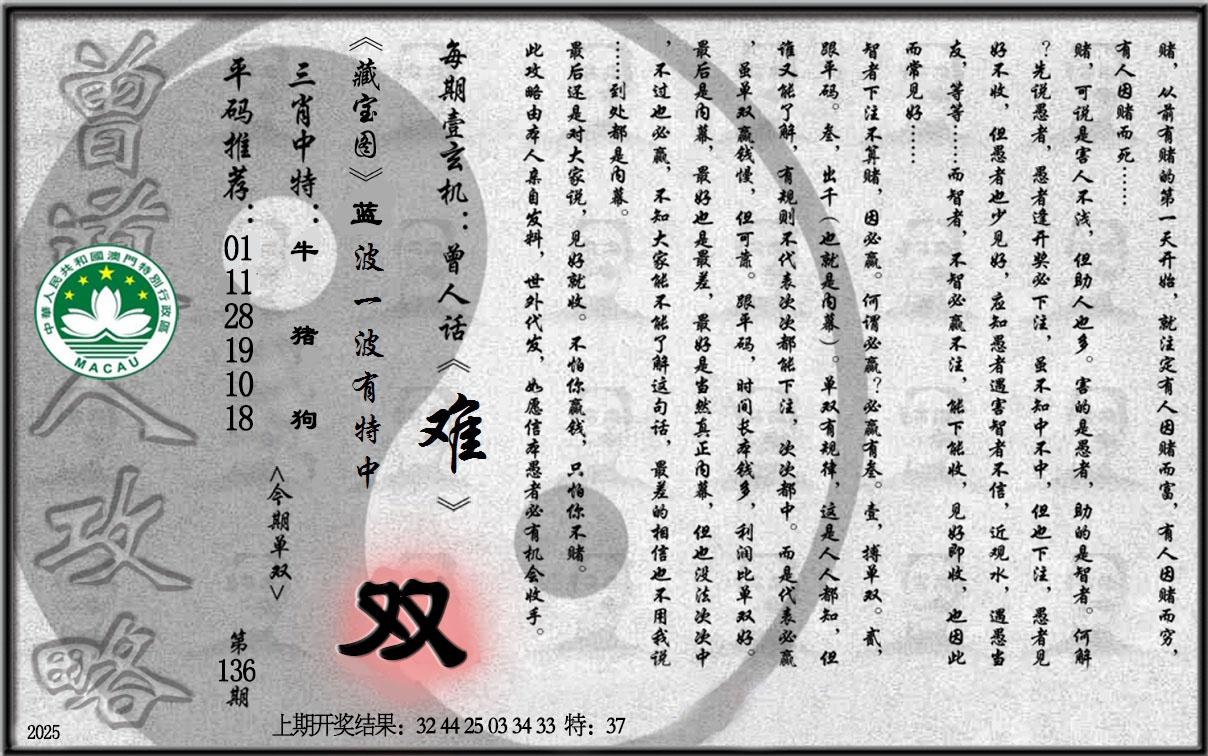 赌，从前有赌的第一天开始，就注定有人因赌而富，有人因赌而穷，
有人因赌而死……
赌，可说是害人不浅，但助人也多。害的是愚者，助的是智者。何解
？先说愚者，愚者逢开奖必下注，虽不知中不中，但也下注，愚者见
好不收，但愚者也少见好，应知愚者遇害智者不信，近观水，遇愚当
友，等等……而智者，不智必赢不注，能下能收，见好即收，也因此
而常见好……
智者下注不算赌，因必赢。何谓必赢？必赢有叁。壹，搏单双。贰，
跟平码。叁，出千（也就是内幕）。单双有规律，这是人人都知，但
谁又能了解，有规则不代表次次都能下注，次次都中。而是代表必赢
，虽单双赢钱慢，但可靠。跟平码，时间长本钱多，利润比单双好。
最后是内幕，最好也是最差，最好是当然真正内幕，但也没法次次中
，不过也必赢，不知大家能不能了解这句话，最差的相信也不用我说
……到处都是内幕。
最后还是对大家说，见好就收。不怕你赢钱，只怕你不赌。
此攻略由本人亲自发料，世外代发，如愿信本愚者必有机会收手。
每期壹玄机：曾人话《难》
《藏宝图》蓝波一波有特中
双
三肖中特：牛 猪 狗
<今期单双>
平码推荐：01 11 28 19 10 18
第136期
曾道人攻略
中華人民共和國澳門特別行政區
MACAU
上期开奖结果：32 44 25 03 34 33 特：37
2025